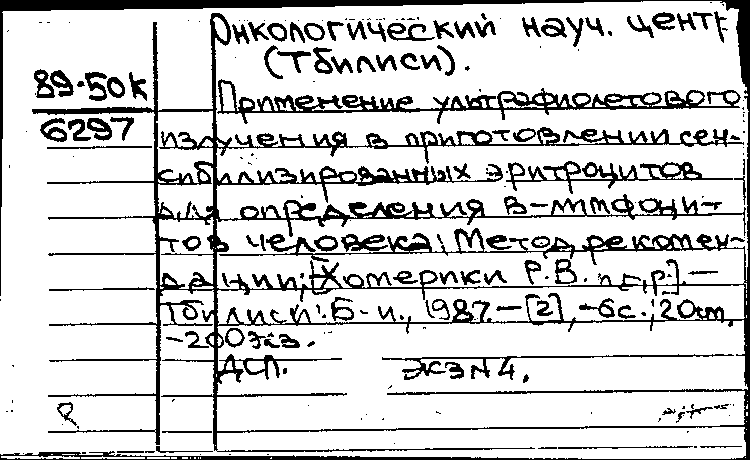 Онкологический науч. центр
(Тбилиси).
89-50к
6297
Применение ультрафиолетового
излучения в приготовлении сен-
сибилизированных эритроцитов
для определения В-лимфоци-
тов человека: Метод. рекомен-
дации; [Хомерики Р.В. и др.]. —
Тбилиси: Б. и., 1987. — [2], -6с.; 20см.
-200экз.
ДСП. экз N 4.